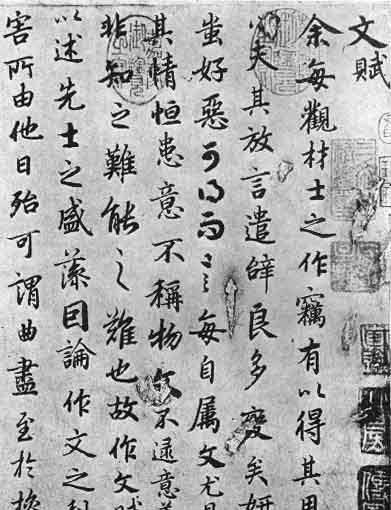 文賦
余每觀材士之作竊有以得其用
心夫其放言遣辭良多變矣妍
蚩好惡可得而言每自属文尤見
其情恒患意不稱物文不逮意蓋
非知之難能之難也故作文賦
以述先士之盛藻因論作文之利
害所由他日殆可謂曲盡至於操